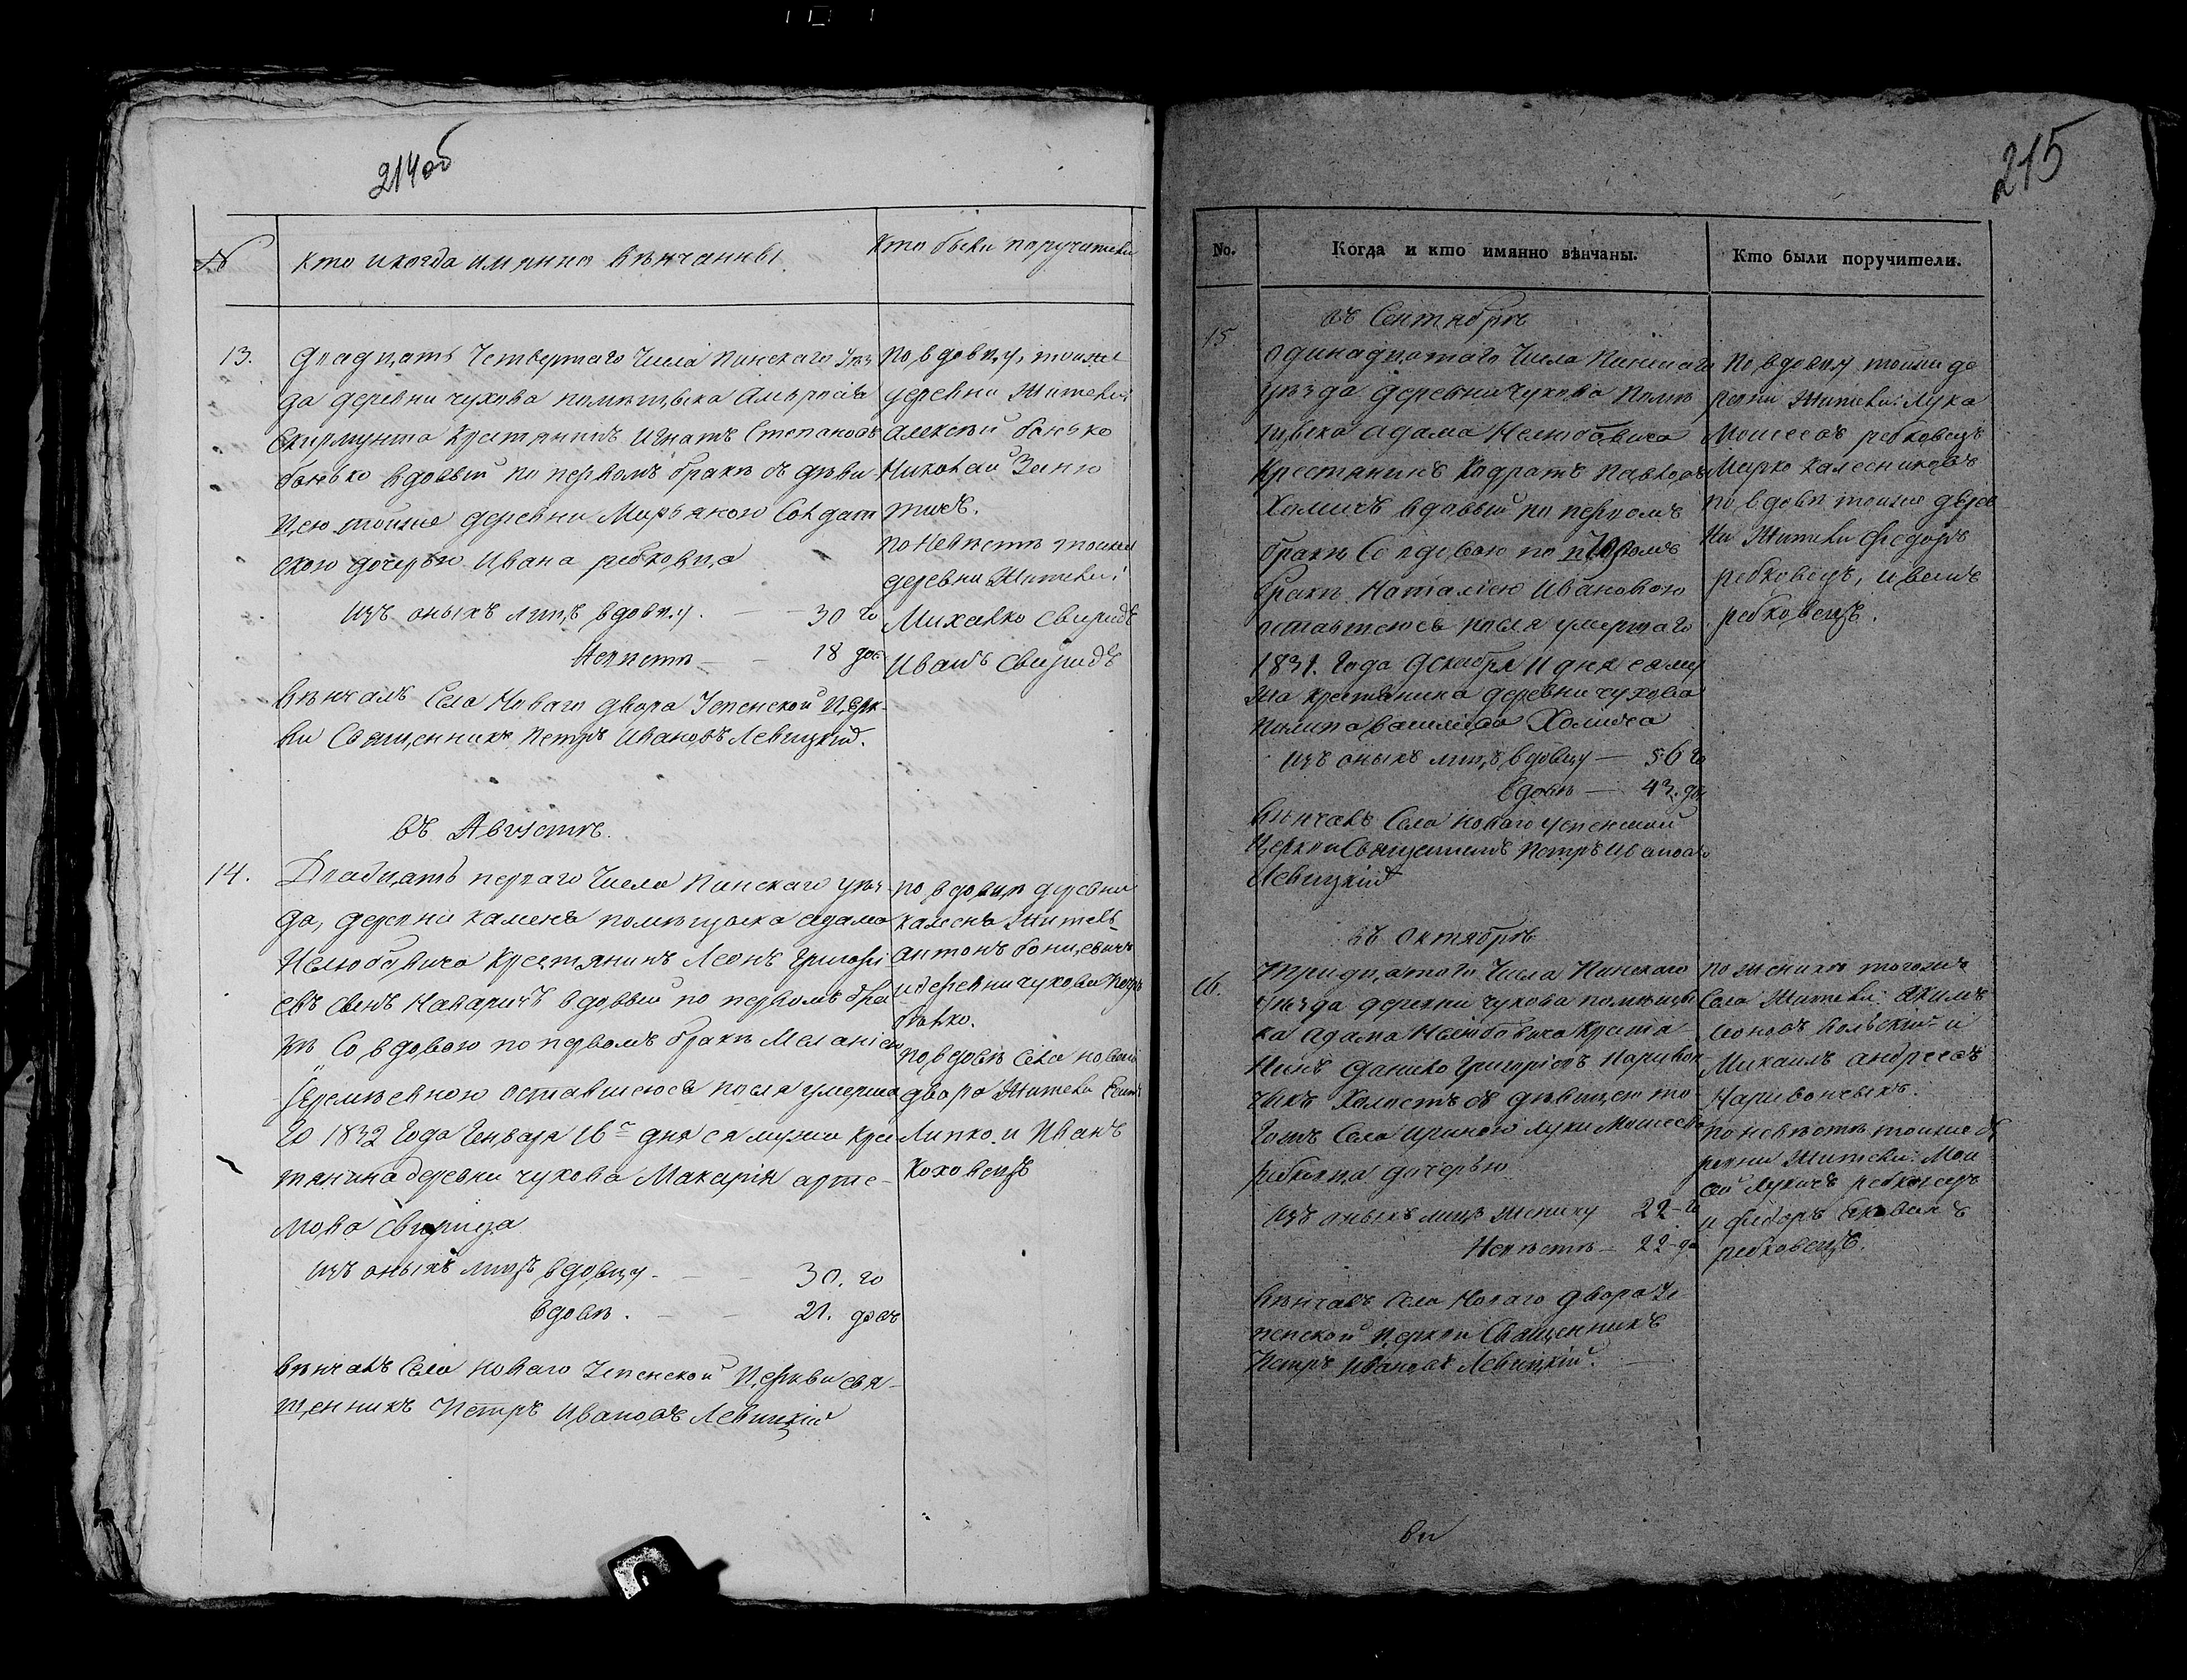 214об
№
кто и когда имянно вѣнчанны.
Кто были поручители
13.
Двадцать Четвертаго Числа Пинскаго Уѣз
да деревни чухова помѣщыка Амвросія
Скирмунта Крестянинъ Игнатъ Степановъ
бонько вдовый по первомъ бракѣ съ дѣви
цею тоиже деревни Марьяною Солдат
скою дочерью Ивана ребковца
Изъ оныхъ лицъ вдовцу. — — 30 го
Невѣстѣ — — 18 до.
Вѣнчалъ Села Новаго двора Успенской Церк-
ви Священникъ Петръ Ивановъ Левицкий.
по вдовцу, тоиже
деревни Жители:
Алексѣй бонько
Николай
по Невѣстѣ тоиже
деревни Жители:
Михалко Свиридъ
Иванъ Свиридъ
въ Августѣ.
14.
Двадцать перваго Числа Пинскаго уѣз-
да, деревни камень помѣщыка Адама
Нелюбовича Крестянинъ Леонъ Григорі
евъ сынъ вдовый по первомъ бра
кѣ Со вдовою по первомъ бракѣ Меланіею
Еремѣевною оставшеюсь посля умерша
го 1832 Года Генваря 16го дня ея мужа Крес
тянина деревни чухова Макарія арте-
мова Свирида
Изъ оныхъ лицъ вдовцу. — — 30. го
вдовѣ. — — 21. довъ
Вѣнчалъ Села Новаго Успенской Церкви Свя-
щенникъ Петръ Ивановъ Левицкий
по вдовцѣ деревни
камень Житель
Антонъ
и деревни чухова
по вдовѣ Села новаго
двора Жители
Липко и Иванъ
Коховецъ
215
No.
Когда и кто имянно вѣнчаны.
Кто были поручители.
15.
въ Сентябрѣ
одинадцатаго Числа Пинскаго
Уѣзда деревни чухова Помѣ
щыка Адама Нелюбовича
Крестянинъ Кодратъ Павловъ
Холичъ вдовый по первомъ
бракѣ Со вдовою по второмъ
бракѣ Наталіею Ивановою
оставшеюсь посля умершаго
1831. Года Декабря 11 дня ея му
жа крестянина деревни чухова
Пилипа василева Холича
Изъ оныхъ лицъ вдовцу — 56 го
вдовѣ — 43. до
Вѣнчалъ Села Новаго Успенской
Церкви Священникъ Петръ Ивановъ
Левицкий
по вдовцу тоиже де
ревни Жители: Лука
Моисеевъ ребковецъ
Марко Калесниковъ
по вдовѣ тоиже дерев
ни Жители Федоръ
ребковецъ, Иванъ
ребковецъ.
въ Октябрѣ
16.
Тридцатаго Числа Пинскаго
Уѣзда деревни чухова помѣщы
ка Адама Нелюбовича Крестя
нинъ Данило Григоріевъ Наривон
чыкъ Холостъ съ дѣвицею то
гожъ Села Ириною Луки Моисеева
ребковца дочерью
Изъ оныхъ лицъ жениху 22-го
Невѣстѣ — 22-до
Вѣнчалъ Села Новаго двора Ус
пенской Церкви Священникъ
Петръ Ивановъ Левицкій. —
по женихѣ тогожъ
Села Жители: Якимъ
и
Михаилъ Андреевъ
Наривончыкъ.
по невѣстѣ тоиже де
ревни Жители: Мои
сей Лукичъ ребковецъ
и Федоръ
ребковецъ.